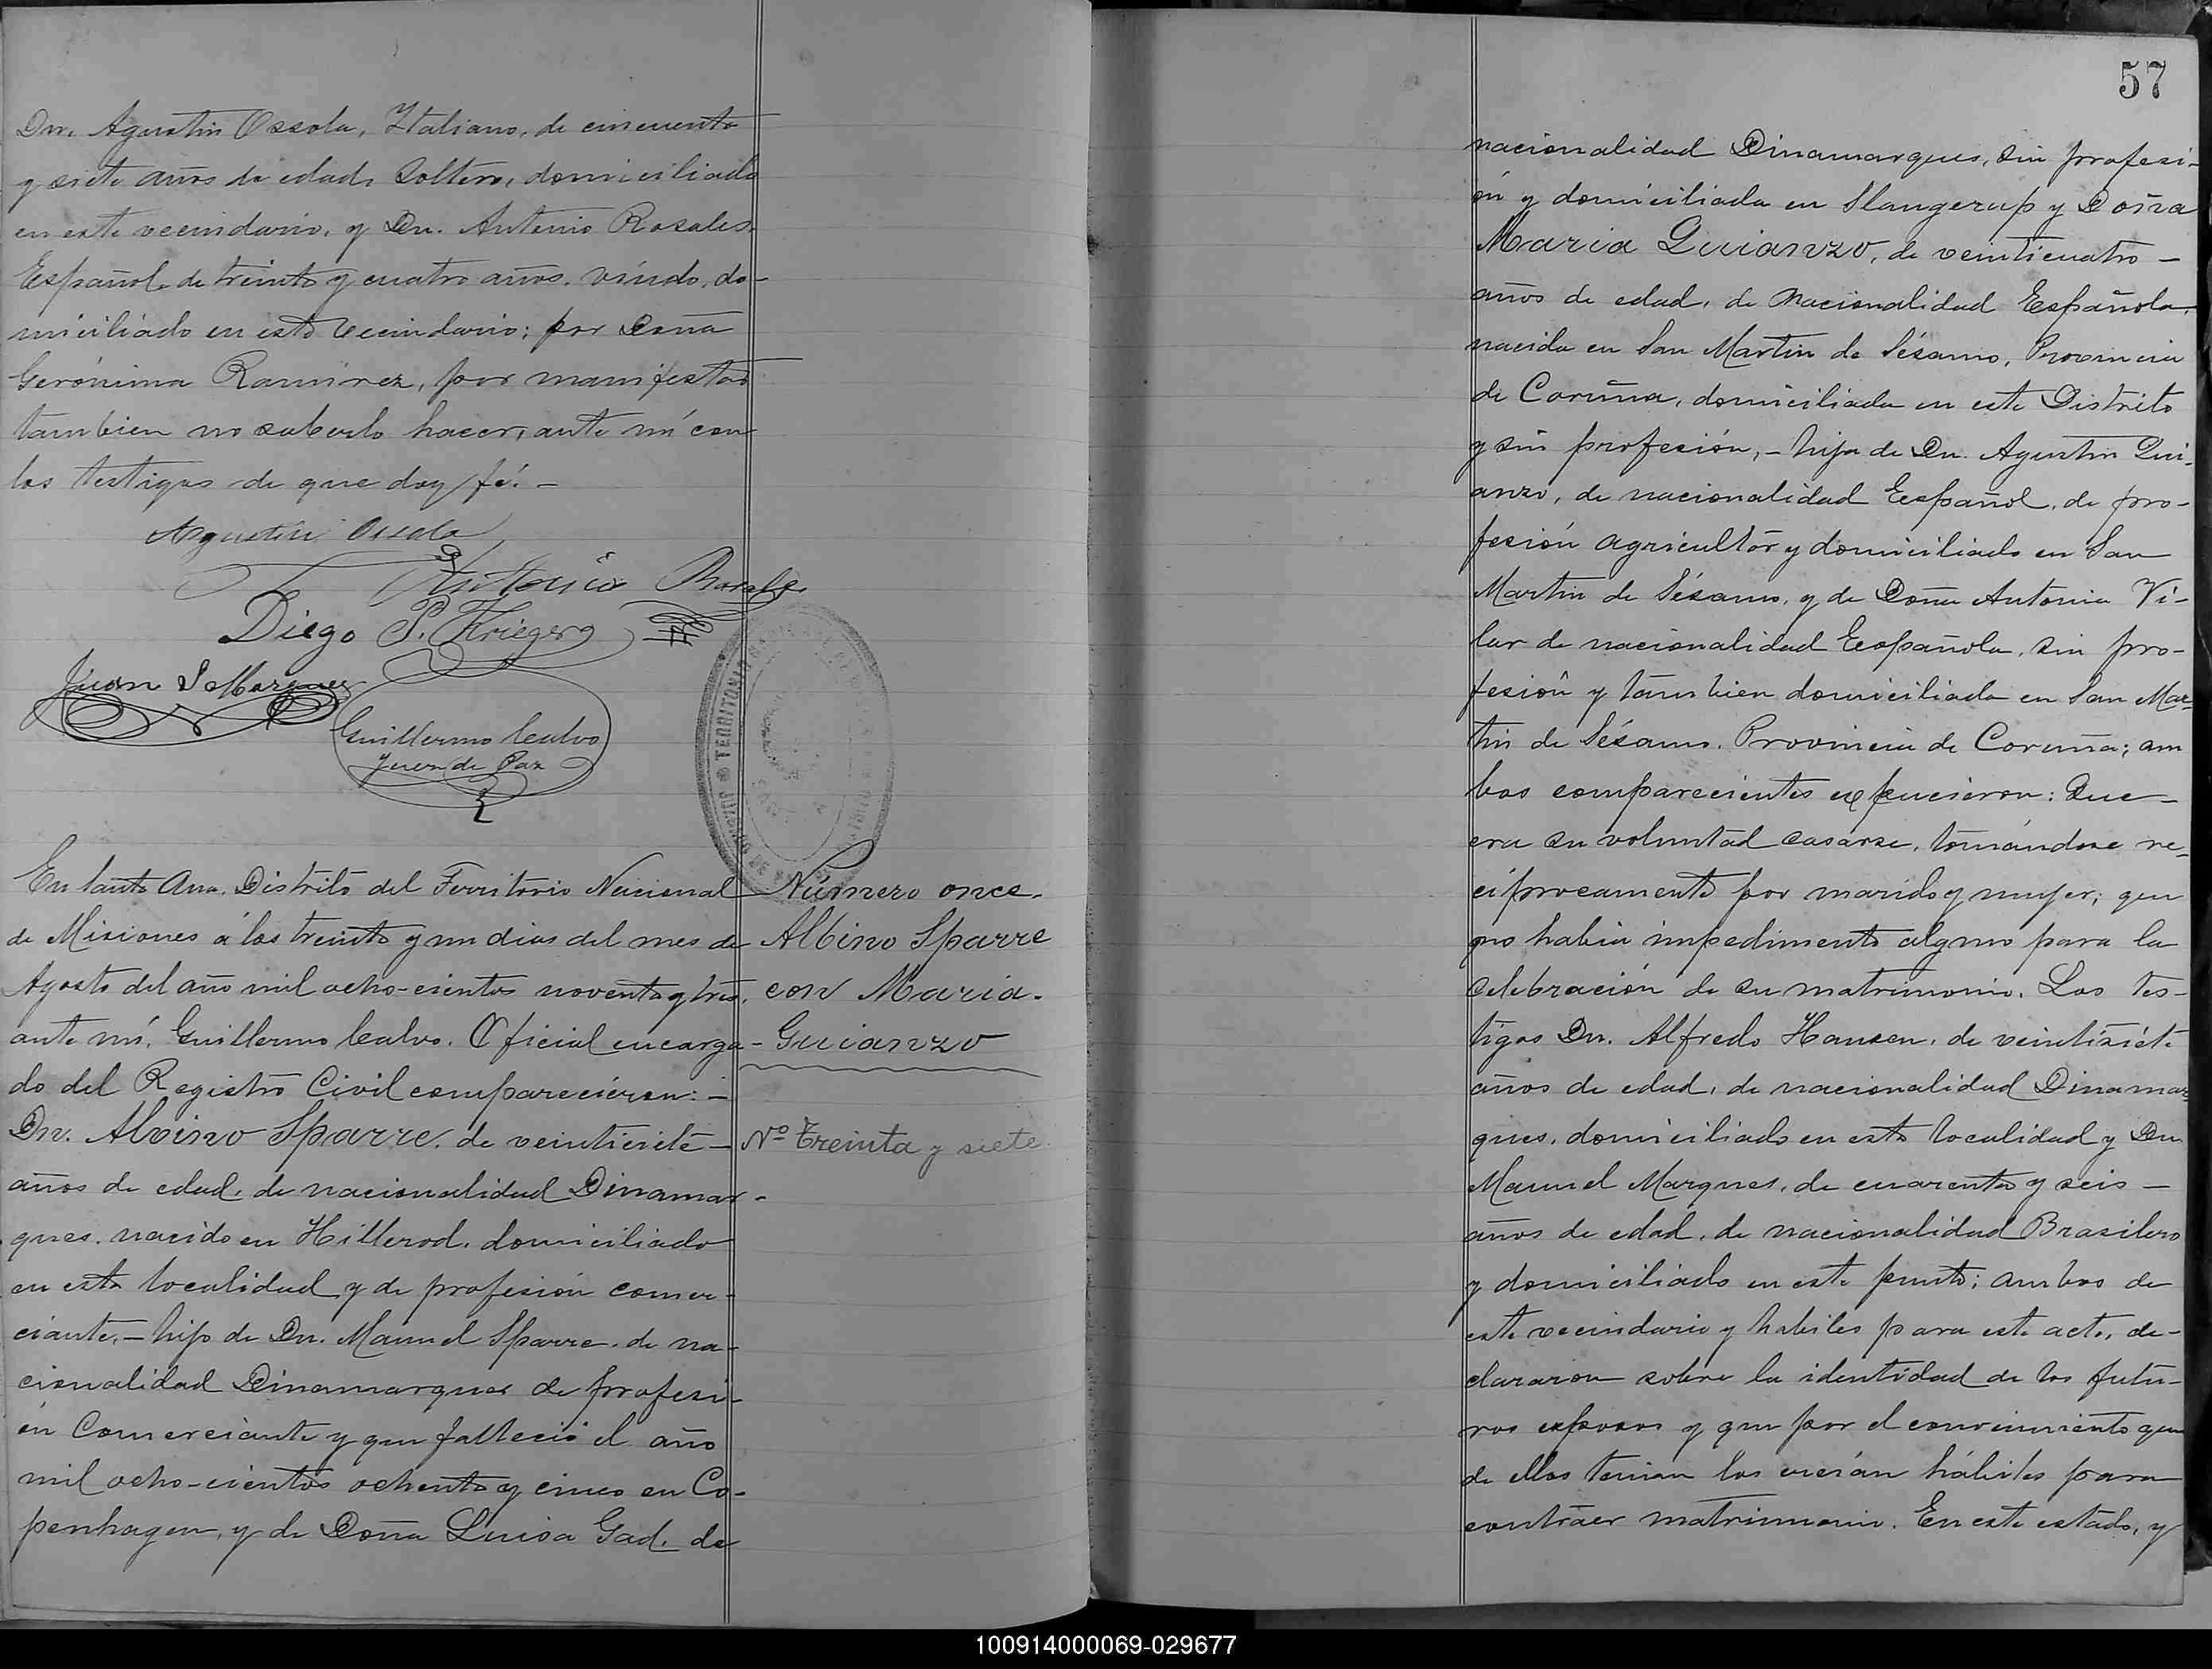 Dn. Agustin Ossola, Italiano, de cincuenta
y siete años de edad, Soltero, domiciliado
en este vecindario, y Dn. Antonio Rosales,
Español, de treinta y cuatro años, viudo, do-
miciliado en este vecindario; por Doña
Gerónima Ramirez, por manifestar
tambien no saberlo hacer, ante mí con
los testigos de que doy fé. -
Agustin Ossola
Antonio Rosales
Diego P. Krieger
Juan S Marques
Guillermo Calvo
Juez de Paz
En Santa Ana, Distrito del Territorio Nacional
de Misiones á los treinta y un dias del mes de
Agosto del año mil ocho-cientos noventa y tres,
ante mí, Guillermo Calvo, Oficial encarga-
do del Registro Civil comparecieron: -
Dn. Alvino Sparre, de veintisiete -
años de edad, de nacionalidad Dinamar-
ques, nacido en Hillerod, domiciliado
en esta localidad y de profesión comer-
ciante, - hijo de Dn. Manuel Sparre, de na-
cionalidad Dinamarques de profesi-
ón Comerciante y que falleció el año
mil ocho-cientos ochenta y cinco en Co-
penhagen, y de Doña Luisa Gad, de
Número once.
Albino Sparre
con Maria.
Guianzo
Nº Treinta y siete
TERRITORIO
57
nacionalidad Dinamarques, sin profesi-
ón y domiciliada en Slangerup y Doña
Maria Quianzo, de veinticuatro -
años de edad, de nacionalidad Española,
nacida en San Martin de Sésamo, Provincia
de Coruña, domiciliada en este Distrito
y sin profesión, - hija de Dn. Agustin Qui-
anzo, de nacionalidad Español, de pro-
fesión agricultor y domiciliado en San
Martin de Sésamo, y de Doña Antonia Vi-
lar de nacionalidad Española, sin pro-
fesión y tambien domiciliada en San Mar-
tin de Sésamo, Provincia de Coruña; am
bos comparecientes expucieron: Que -
era su voluntad casarse, tomándose re-
ciprocamente por marido y mujer; que
no habia impedimento alguno para la
celebración de su matrimonio. Los tes-
tigos Dn. Alfredo Hansen, de veintisiete
años de edad, de nacionalidad Dinamar
ques, domiciliado en esta localidad y Dn.
Manuel Marques, de cuarenta y seis -
años de edad, de nacionalidad Brasilero
y domiciliado en este punto; ambos de
este vecindario y habiles para este acto, de-
clararon sobre la identidad de los futu-
ros esposos y que por el conocimiento que
de ellos tenian los creían hábiles para
contraer matrimonio. En este estado, y
100914000069-029677